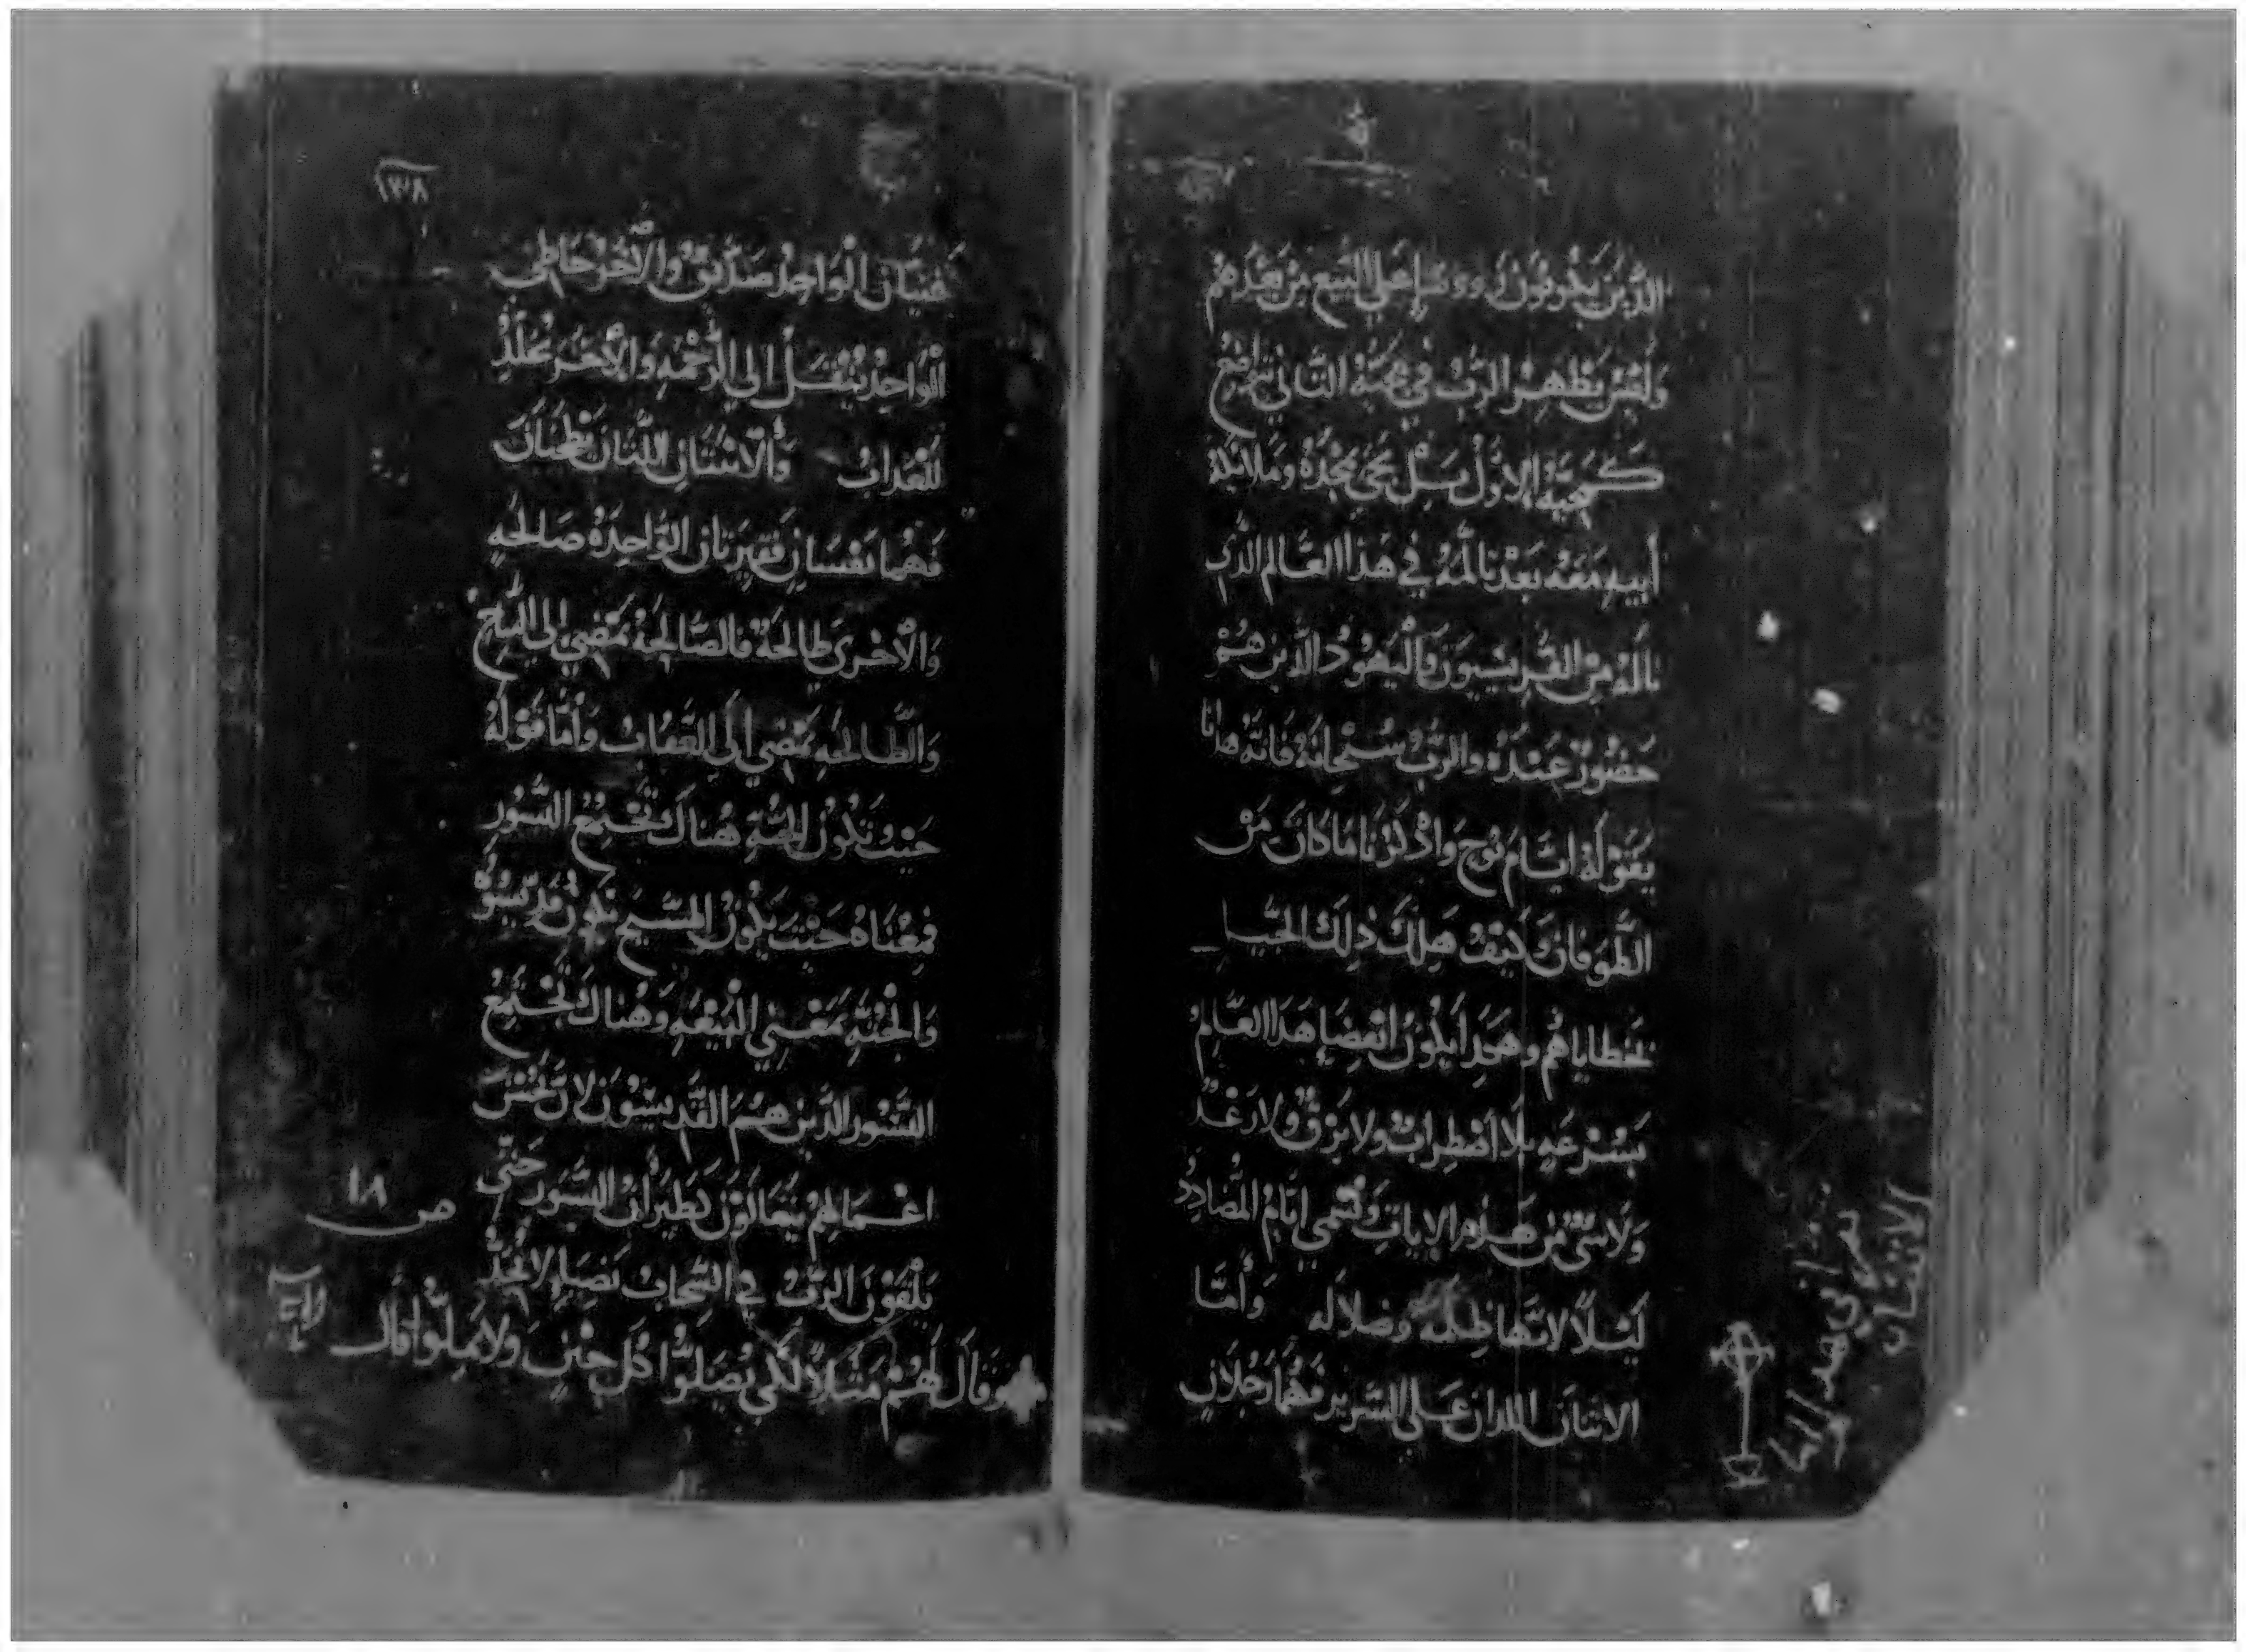 الذين يكونون رووسا على البيع من بعدهم
وليس يظهر الرب في مجيه الثاني متواضع
كمجيه الاول بل يجي بمجده وملايكة
أبيه معه بعد تالمه في هذا العالم الذي
ناله من الفريسيون واليهود الذين هم
حضور عنده والرب سبحانه فانه هدانا
بقوله ايام نوح واذكرنا ما كان من
الطوفان وكيف هلك ذلك الجيل
بخطاياهم وهكدا يكون انقضا هدا العالم
بسرعه بلا اضطراب ولا برق ولا رعد
ولا شي من هذه الايات وتسمي ايام المضادد
ليلا لانها ظلمه وضلاله وأما
الاثنان اللدان على السرير فهما رجلان
١٣٨
غنيان الواحد صديق والأخر خاطي
الواحد ينتقل الي الرحمه والأخر يخلد
للعداب والاثنتان اللتان تطحنان
فهما نفسان فقيرتان الواحدة صالحه
والأخرى طالحة فالصالحة تمضي الى المسيح
والطالحه تمضي الى العقاب وأما قوله
حيث تكون الجثة هناك تجتمع النسور
فمعناه حيث يكون المسيح تكون قديسوه
والجثة بمعني البيعه وهناك تجتمع
النسور الذين هم القديسون لان بحسن
اعمالهم يتعالون كطيران النسور حتى
يلقون الرب في السحاب بضيا لا يحد
وقال لهم مثلا لكي يصلوا كل حين ولا يملوا قال
ص ١٨